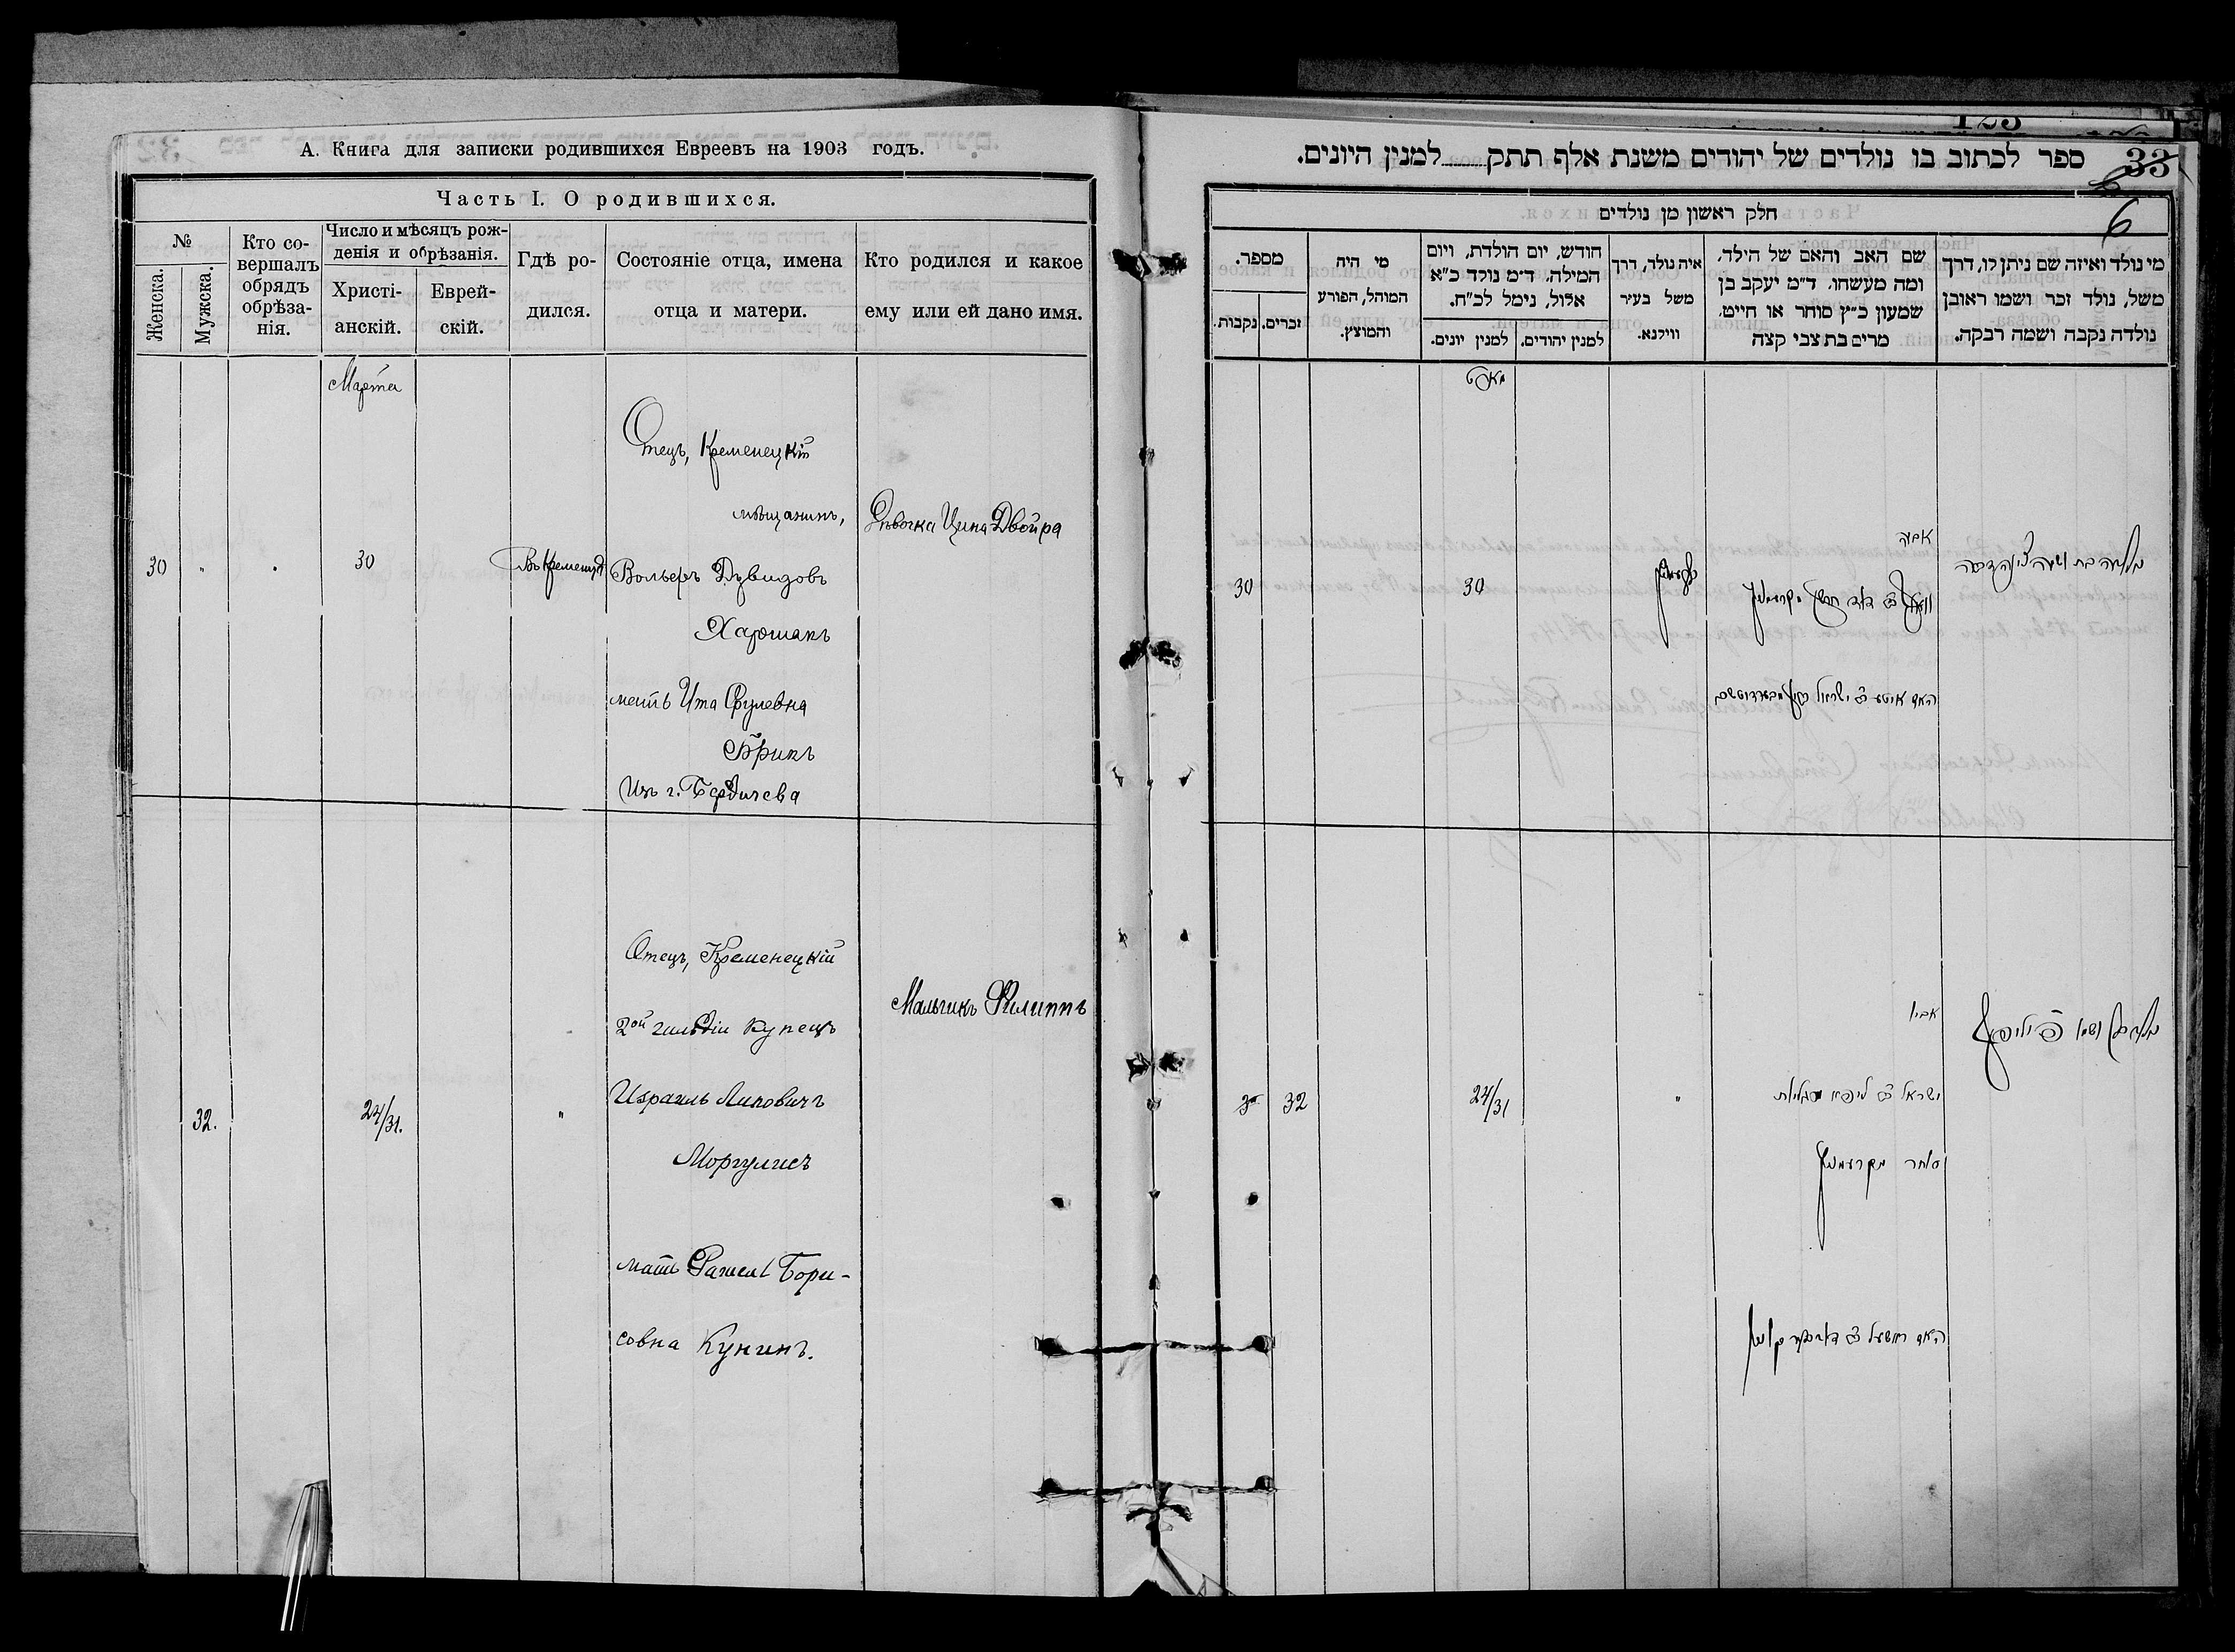 А. Книга для записки родившихся Евреевъ на 1903 годъ.
Часть I. О родившихся.
№
Женска.
Мужска.
Кто со-
вершалъ
обрядъ
обрѣза-
нія.
Число и мѣсяцъ рож-
денія и обрѣзанія.
Христі-
анскій.
Еврей-
скій.
Гдѣ ро-
дился.
Состояніе отца, имена
отца и матери.
Кто родился и какое
ему или ей дано имя.
Марта
30 " " 30
Въ Кременцѣ
Отецъ, Кременецкій
мѣщанинъ,
Вольфъ Дувидовъ
Харошакъ
мать Ита Срулевна
Брикъ
Изъ г. Бердичева
Дѣвочка Цина Двойра
32.
24/31.
"
Отецъ, Кременецкій
2ой гильдіи купецъ
Израиль Липовичъ
Моргулисъ
мать Рахель Бори-
совна Кунинъ.
Мальчикъ Филиппъ
33
6
ספר לכתוב בו נולדים של יהודים משנת אלף תתק למנין היונים.
חלק ראשון מן נולדים
מספר.
נקבות.
זכרים.
מי היה
המוהל, הפורע
והמוצץ.
חודש, יום הולדת, ויום
המילה. ד״מ נולד כ״א
אלול, נימל לכ״ח.
למנין יונים.
למנין יהודים.
איה נולד, דרך
משל בעיר
ווילנא.
שם האב והאם של הילד,
ומה מעשהו. ד״מ יעקב בן
שמעון כ״ץ סוחר או חייט,
מרים בת צבי קצה
מי נולד ואיזה שם ניתן לו, דרך
משל, נולד זכר ושמו ראובן
נולדה נקבה ושמה רבקה.
מארט
30
30
אביה
32
24/31
"
אביו
ישראל ב״ר ליפא מרגליות
סוחר מקרעמניץ